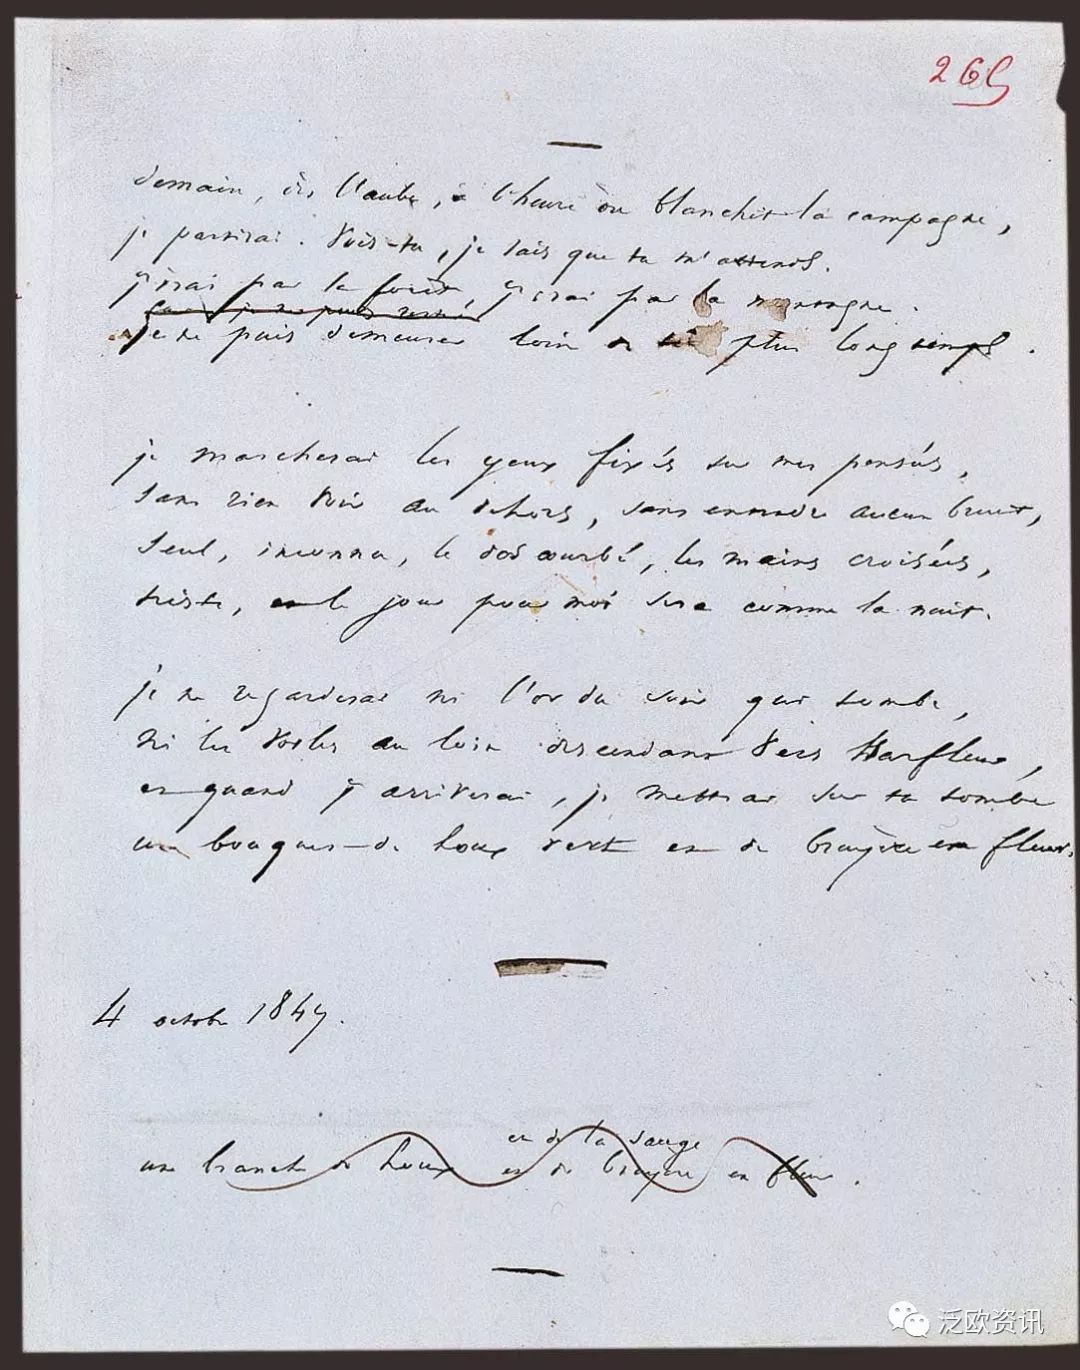 265
demain, dès l'aube, à l'heure où blanchit la campagne,
je partirai. Vois-tu, je sais que tu m'attends.
j'irai par la forêt, j'irai par la montagne.
car je ne puis rester
je ne puis demeurer loin de toi plus longtemps.
je marcherai les yeux fixés sur mes pensées,
sans rien voir au dehors, sans entendre aucun bruit,
seul, inconnu, le dos courbé, les mains croisées,
triste, et le jour pour moi sera comme la nuit.
je ne regarderai ni l'or du soir qui tombe,
ni les voiles au loin descendant vers Harfleur,
et quand j'arriverai, je mettrai sur ta tombe
un bouquet de houx vert et de bruyère en fleur.
4 octobre 1847.
et de la sauge
une branche de houx et de bruyère en fleur.
泛欧资讯